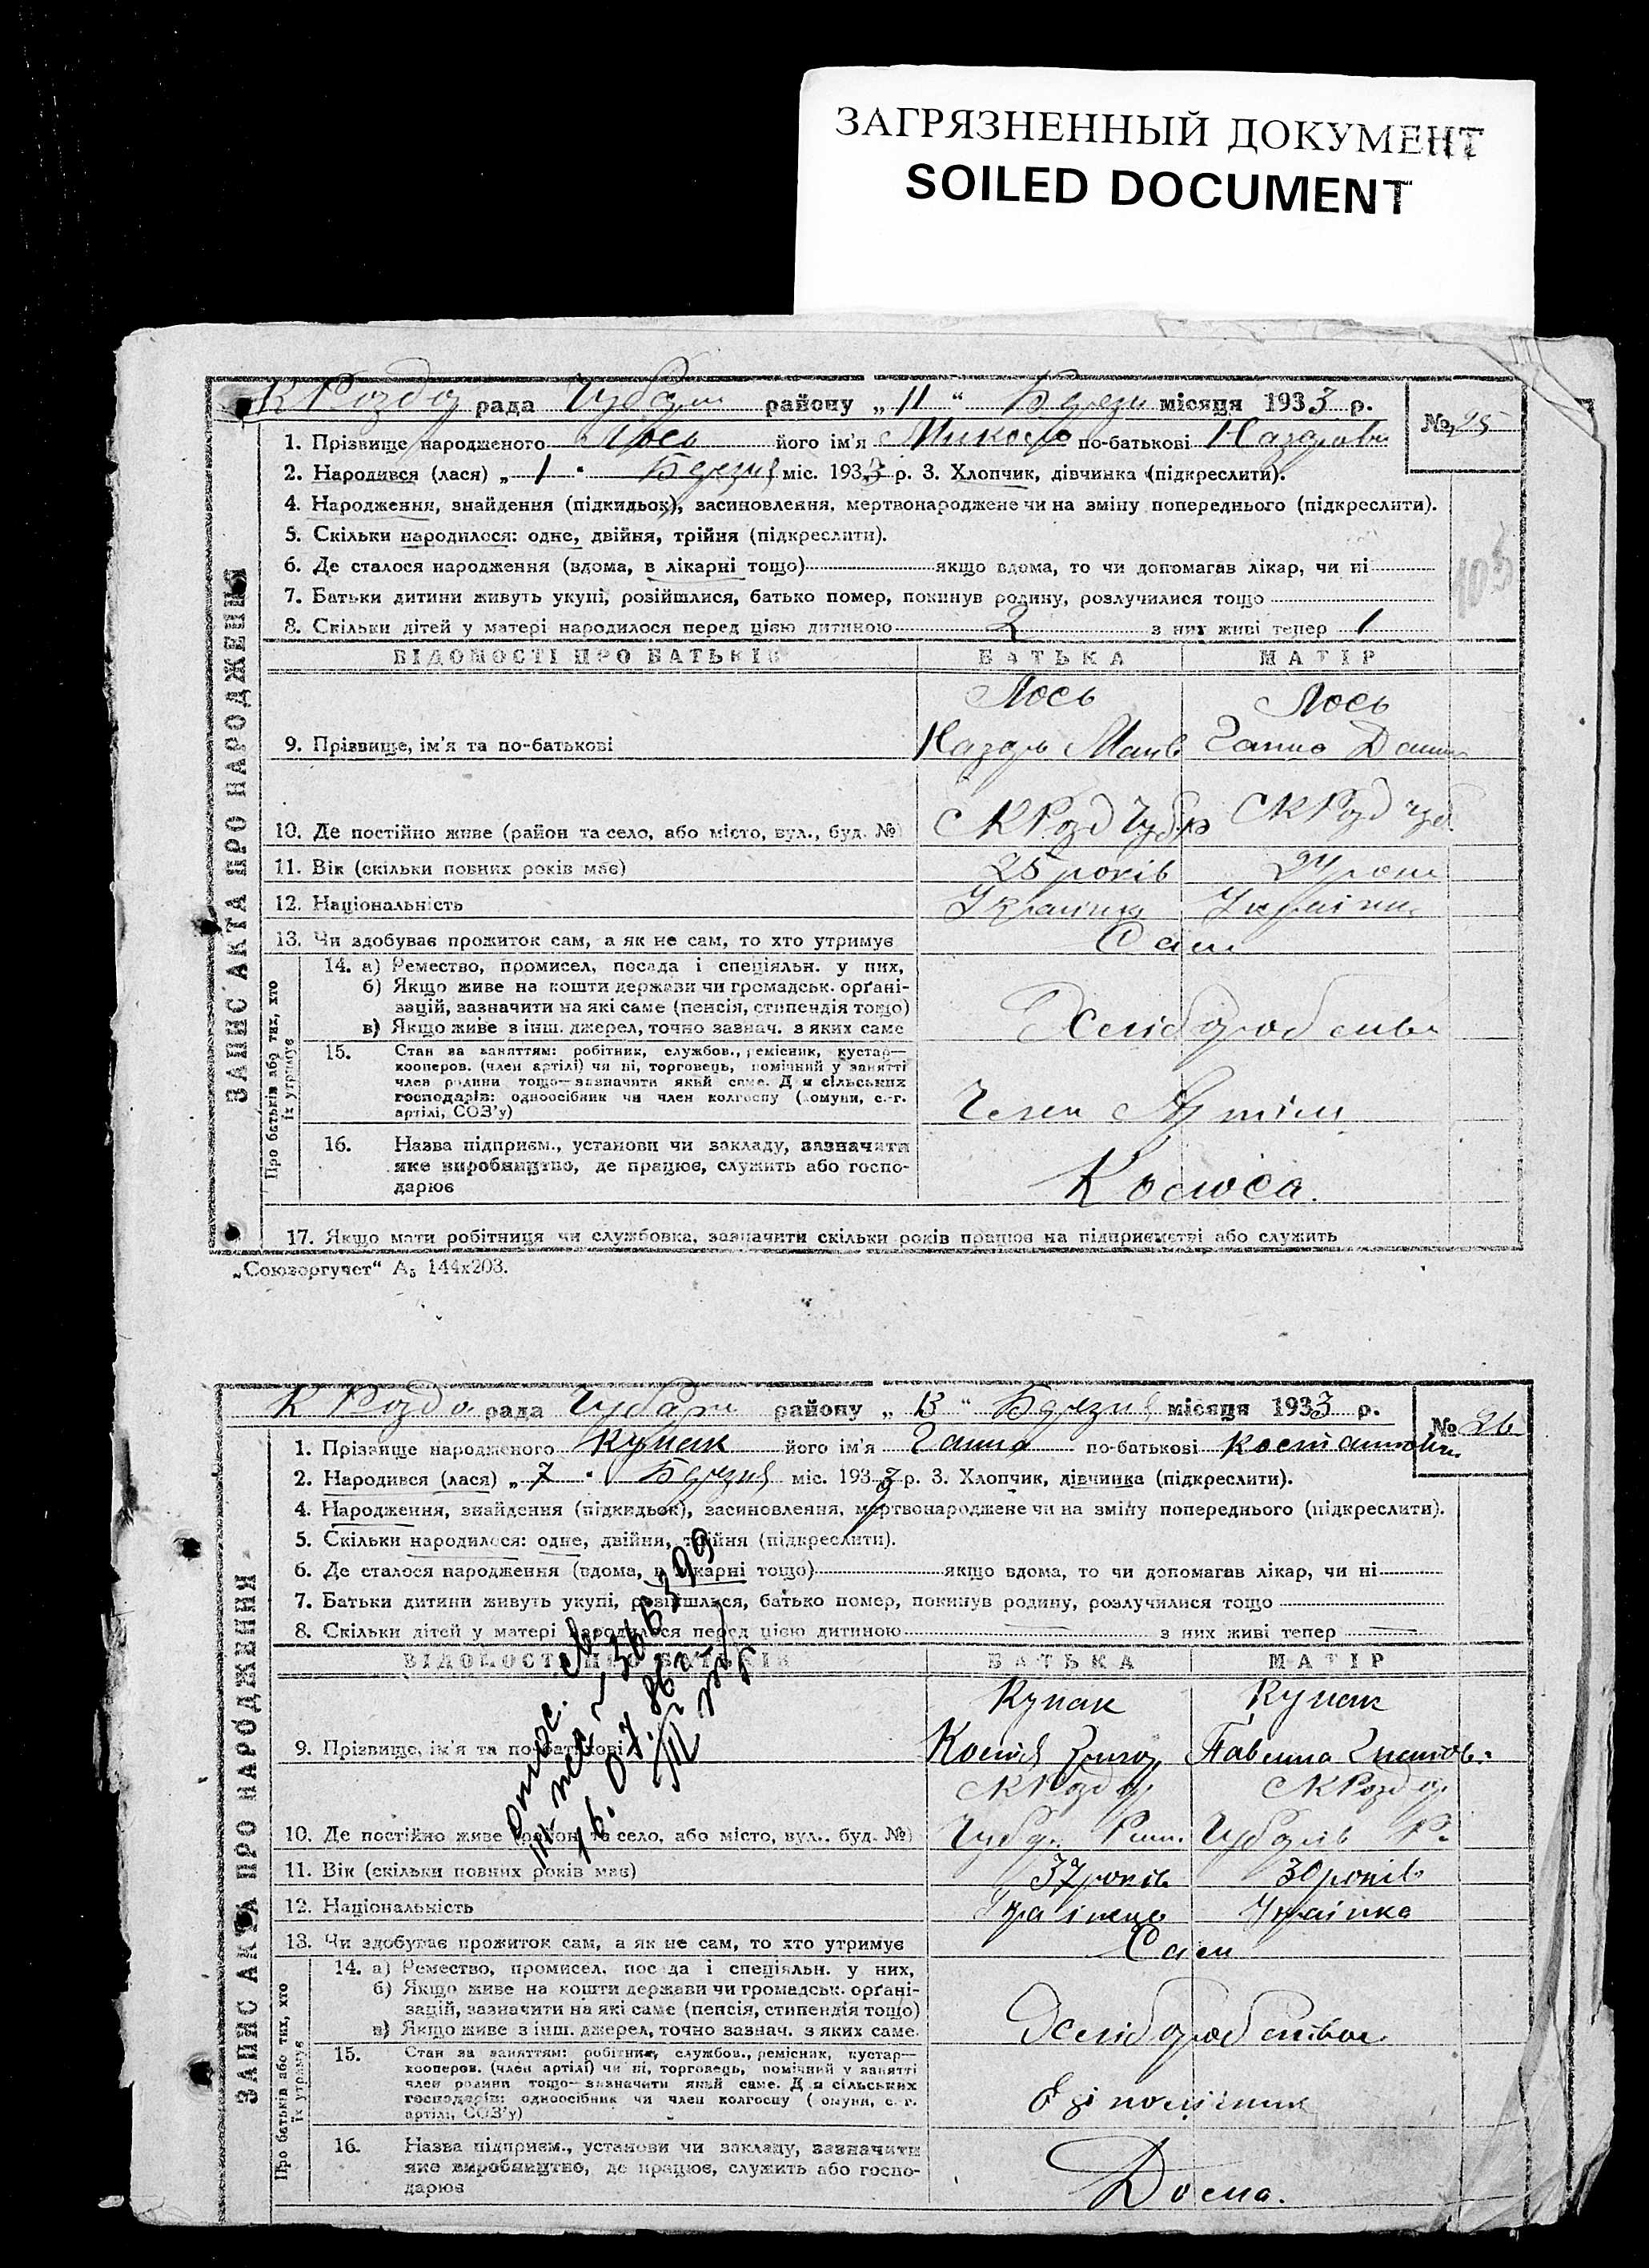 ЗАГРЯЗНЕННЫЙ ДОКУМЕНТ
SOILED DOCUMENT
рада району „11“ місяця 1933 р. № 25
1. Прізвище народженого Лось його ім'я Микола по-батькові
2. Народився (лася) „1“ Березня міс. 1933 р. 3. Хлопчик, дівчинка (підкреслити).
4. Народження, знайдення (підкидьок), засиновлення, мертвонароджене чи на зміну попереднього (підкреслити).
5. Скільки народилося: одне, двійня, трійня (підкреслити).
6. Де сталося народження (вдома, в лікарні тощо) якщо вдома, то чи допомагав лікар, чи ні
7. Батьки дитини живуть укупі, розійшлися, батько помер, покинув родину, розлучилися тощо
8. Скільки дітей у матері народилося перед цією дитиною 2 з них живі тепер 1
ВІДОМОСТІ ПРО БАТЬКІВ БАТЬКА МАТІР
Лось Лось
9. Прізвище, ім'я та по-батькові Ганна
10. Де постійно живе (район та село, або місто, вул., буд. №)
11. Вік (скільки повних років має) 25 років 24 роки
12. Національність
13. Чи здобуває прожиток сам, а як не сам, то хто утримує Сам
14. а) Ремество, промисел, посада і спеціяльн. у них,
б) Якщо живе на кошти держави чи громадськ. орґані-
зацій, зазначити на які саме (пенсія, стипендія тощо)
в) Якщо живе з інш. джерел, точно зазнач. з яких саме
15. Стан за заняттям: робітник, службов., ремісник, кустар—
кооперов. (член артілі) чи ні, торговець, помічний у занятті
член родини тощо—зазначити який саме. Для сільських
господарів: одноосібник чи член колгоспу (комуни, с.-г.
артілі, СОЗ'у)
Член Артілі
16. Назва підприєм., установи чи закладу, зазначити
яке виробництво, де працює, служить або госпо-
дарює
17. Якщо мати робітниця чи службовка, зазначити скільки років працює на підприємстві або служить
„Союзоргучет“ А₅ 144х203.
ЗАПИС АКТА ПРО НАРОДЖЕННЯ
Про батьків або тих, хто
їх утримує
рада району „13“ Березня місяця 1933 р. № 26
1. Прізвище народженого Купак його ім'я Ганна по-батькові
2. Народився (лася) „7“ Березня міс. 1933 р. 3. Хлопчик, дівчинка (підкреслити).
4. Народження, знайдення (підкидьок), засиновлення, мертвонароджене чи на зміну попереднього (підкреслити).
5. Скільки народилося: одне, двійня, трійня (підкреслити).
6. Де сталося народження (вдома, в лікарні тощо) якщо вдома, то чи допомагав лікар, чи ні
7. Батьки дитини живуть укупі, розійшлися, батько помер, покинув родину, розлучилися тощо
8. Скільки дітей у матері народилося перед цією дитиною — з них живі тепер —
ВІДОМОСТІ ПРО БАТЬКІВ БАТЬКА МАТІР
Купак Купак
9. Прізвище, ім'я та по-батькові
10. Де постійно живе (район та село, або місто, вул., буд. №)
11. Вік (скільки повних років має) 37 років 30 років
12. Національність Українець Українка
13. Чи здобуває прожиток сам, а як не сам, то хто утримує Сам
14. а) Ремество, промисел, посада і спеціяльн. у них,
б) Якщо живе на кошти держави чи громадськ. орґані-
зацій, зазначити на які саме (пенсія, стипендія тощо)
в) Якщо живе з інш. джерел, точно зазнач. з яких саме
15. Стан за заняттям: робітник, службов., ремісник, кустар—
кооперов. (член артілі) чи ні, торговець, помічний у занятті
член родини тощо—зазначити який саме. Для сільських
господарів: одноосібник чи член колгоспу (комуни, с.-г.
артілі, СОЗ'у)
16. Назва підприєм., установи чи закладу, зазначити
яке виробництво, де працює, служить або госпо-
дарює
Дома.
ЗАПИС АКТА ПРО НАРОДЖЕННЯ
Про батьків або тих, хто
їх утримує